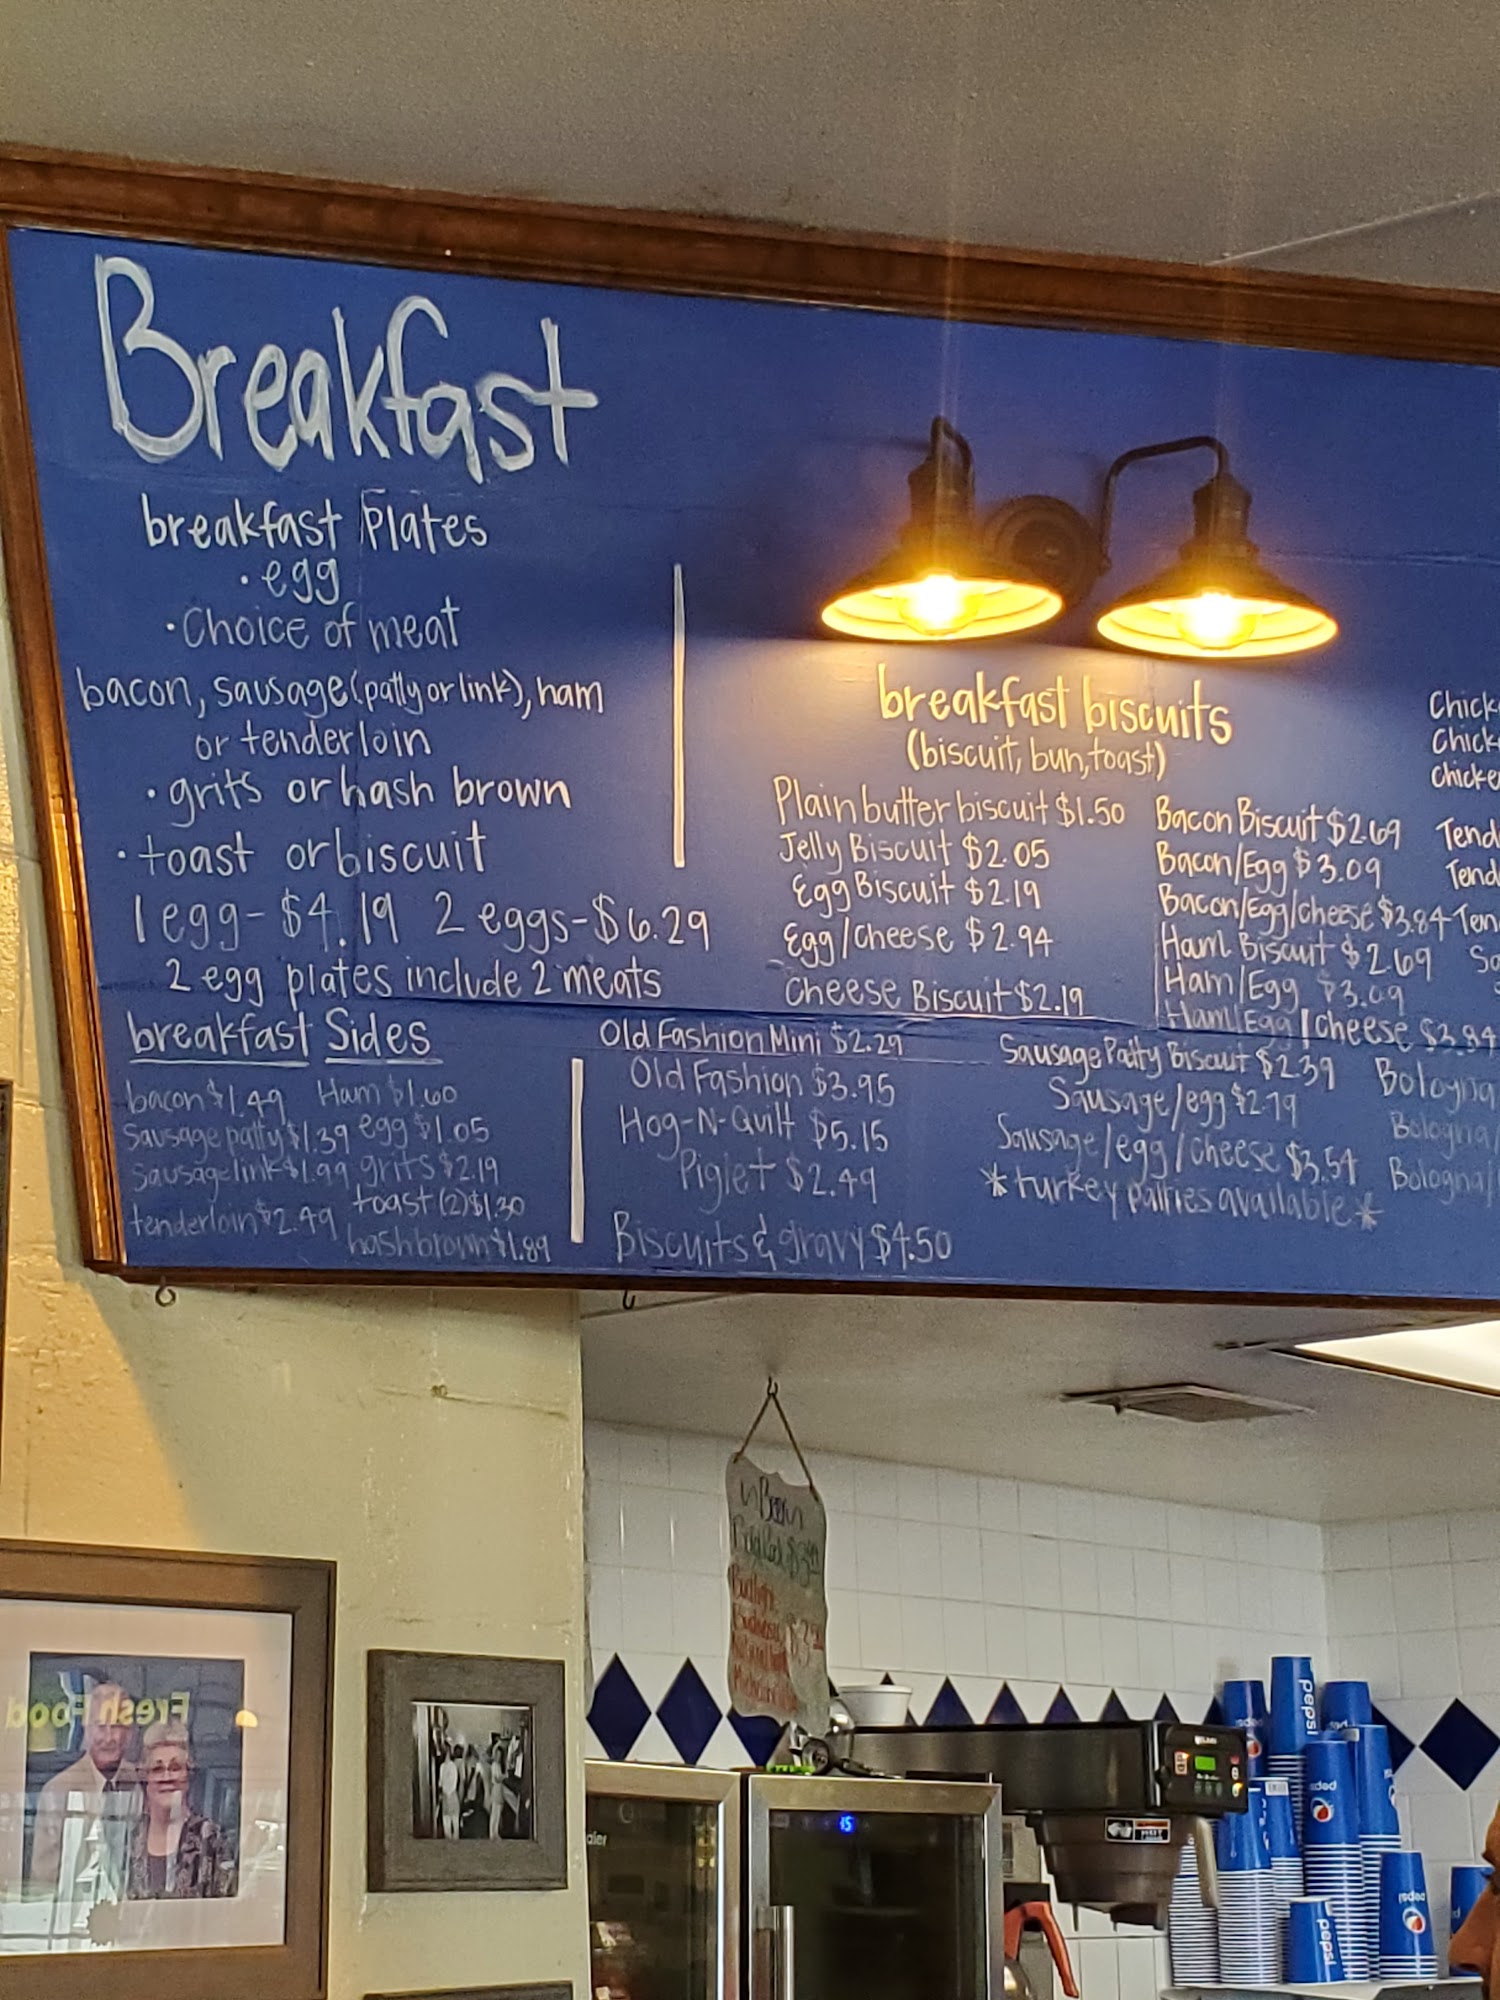 Breakfast
breakfast Plates
• egg
• Choice of meat
bacon, sausage (patty or link), ham
or tenderloin
• grits or hash brown
• toast or biscuit
1 egg - $4.19 2 eggs - $6.29
2 egg plates include 2 meats
breakfast Sides
bacon $1.49 Ham $1.60
Sausage patty $1.39 egg $1.05
Sausage link $1.99 grits $2.19
tenderloin $2.49 toast (2) $1.30
hashbrown $1.89
breakfast biscuits
(biscuit, bun, toast)
Plain butter biscuit $1.50
Jelly Biscuit $2.05
Egg Biscuit $2.19
Egg/Cheese $2.94
Cheese Biscuit $2.19
Old Fashion Mini $2.29
Old Fashion $3.95
Hog-N-Quilt $5.15
Piglet $2.49
Biscuits & gravy $4.50
Bacon Biscuit $2.69
Bacon/Egg $3.09
Bacon/Egg/Cheese $3.84
Ham Biscuit $2.69
Ham/Egg $3.09
Ham/Egg/Cheese $3.84
Sausage Patty Biscuit $2.39
Sausage/egg $2.79
Sausage/egg/Cheese $3.54
*turkey patties available*
Chick
Chick
Chicke
Tend
Tend
Ten
Sa
Bologna
Bologna/
Bologna/
Beer
Fresh Food
15
pepsi
pepsi
pepsi
pepsi